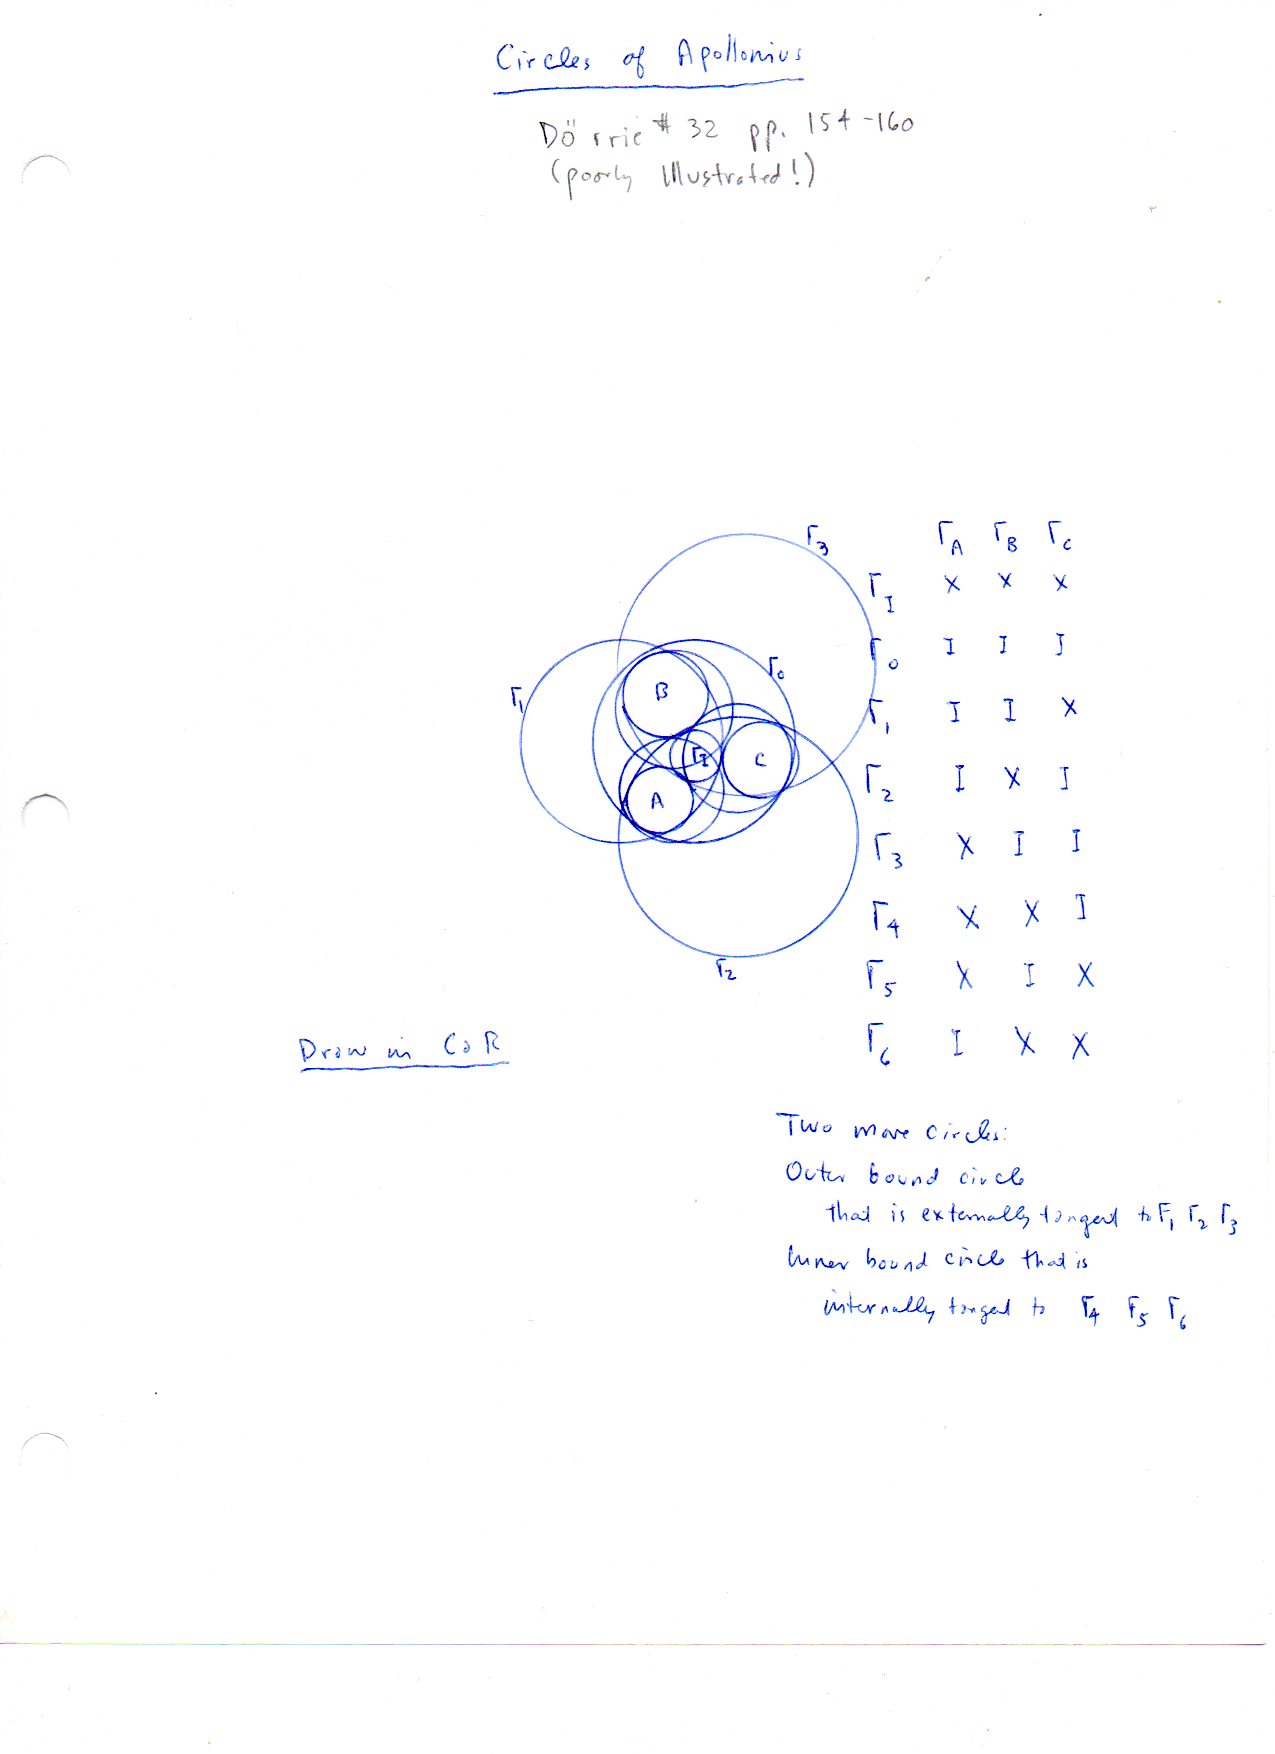 Circles of Apollonius
Dörrie # 32 pp. 154-160
(poorly Illustrated!)
Γ3
Γ0
Γ1
B
ΓI
C
A
Γ2
ΓA ΓB ΓC
ΓI X X X
Γ0 I I I
Γ1 I I X
Γ2 I X I
Γ3 X I I
Γ4 X X I
Γ5 X I X
Γ6 I X X
Draw in CaR
Two more circles:
Outer bound circle
that is externally tangent to Γ1 Γ2 Γ3
Inner bound circle that is
internally tangent to Γ4 Γ5 Γ6